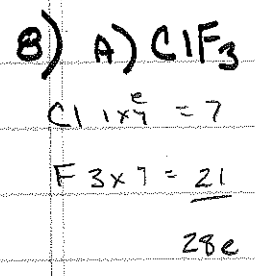 8) A) ClF₃
Cl 1x7e = 7
F 3x7 = 21
28e